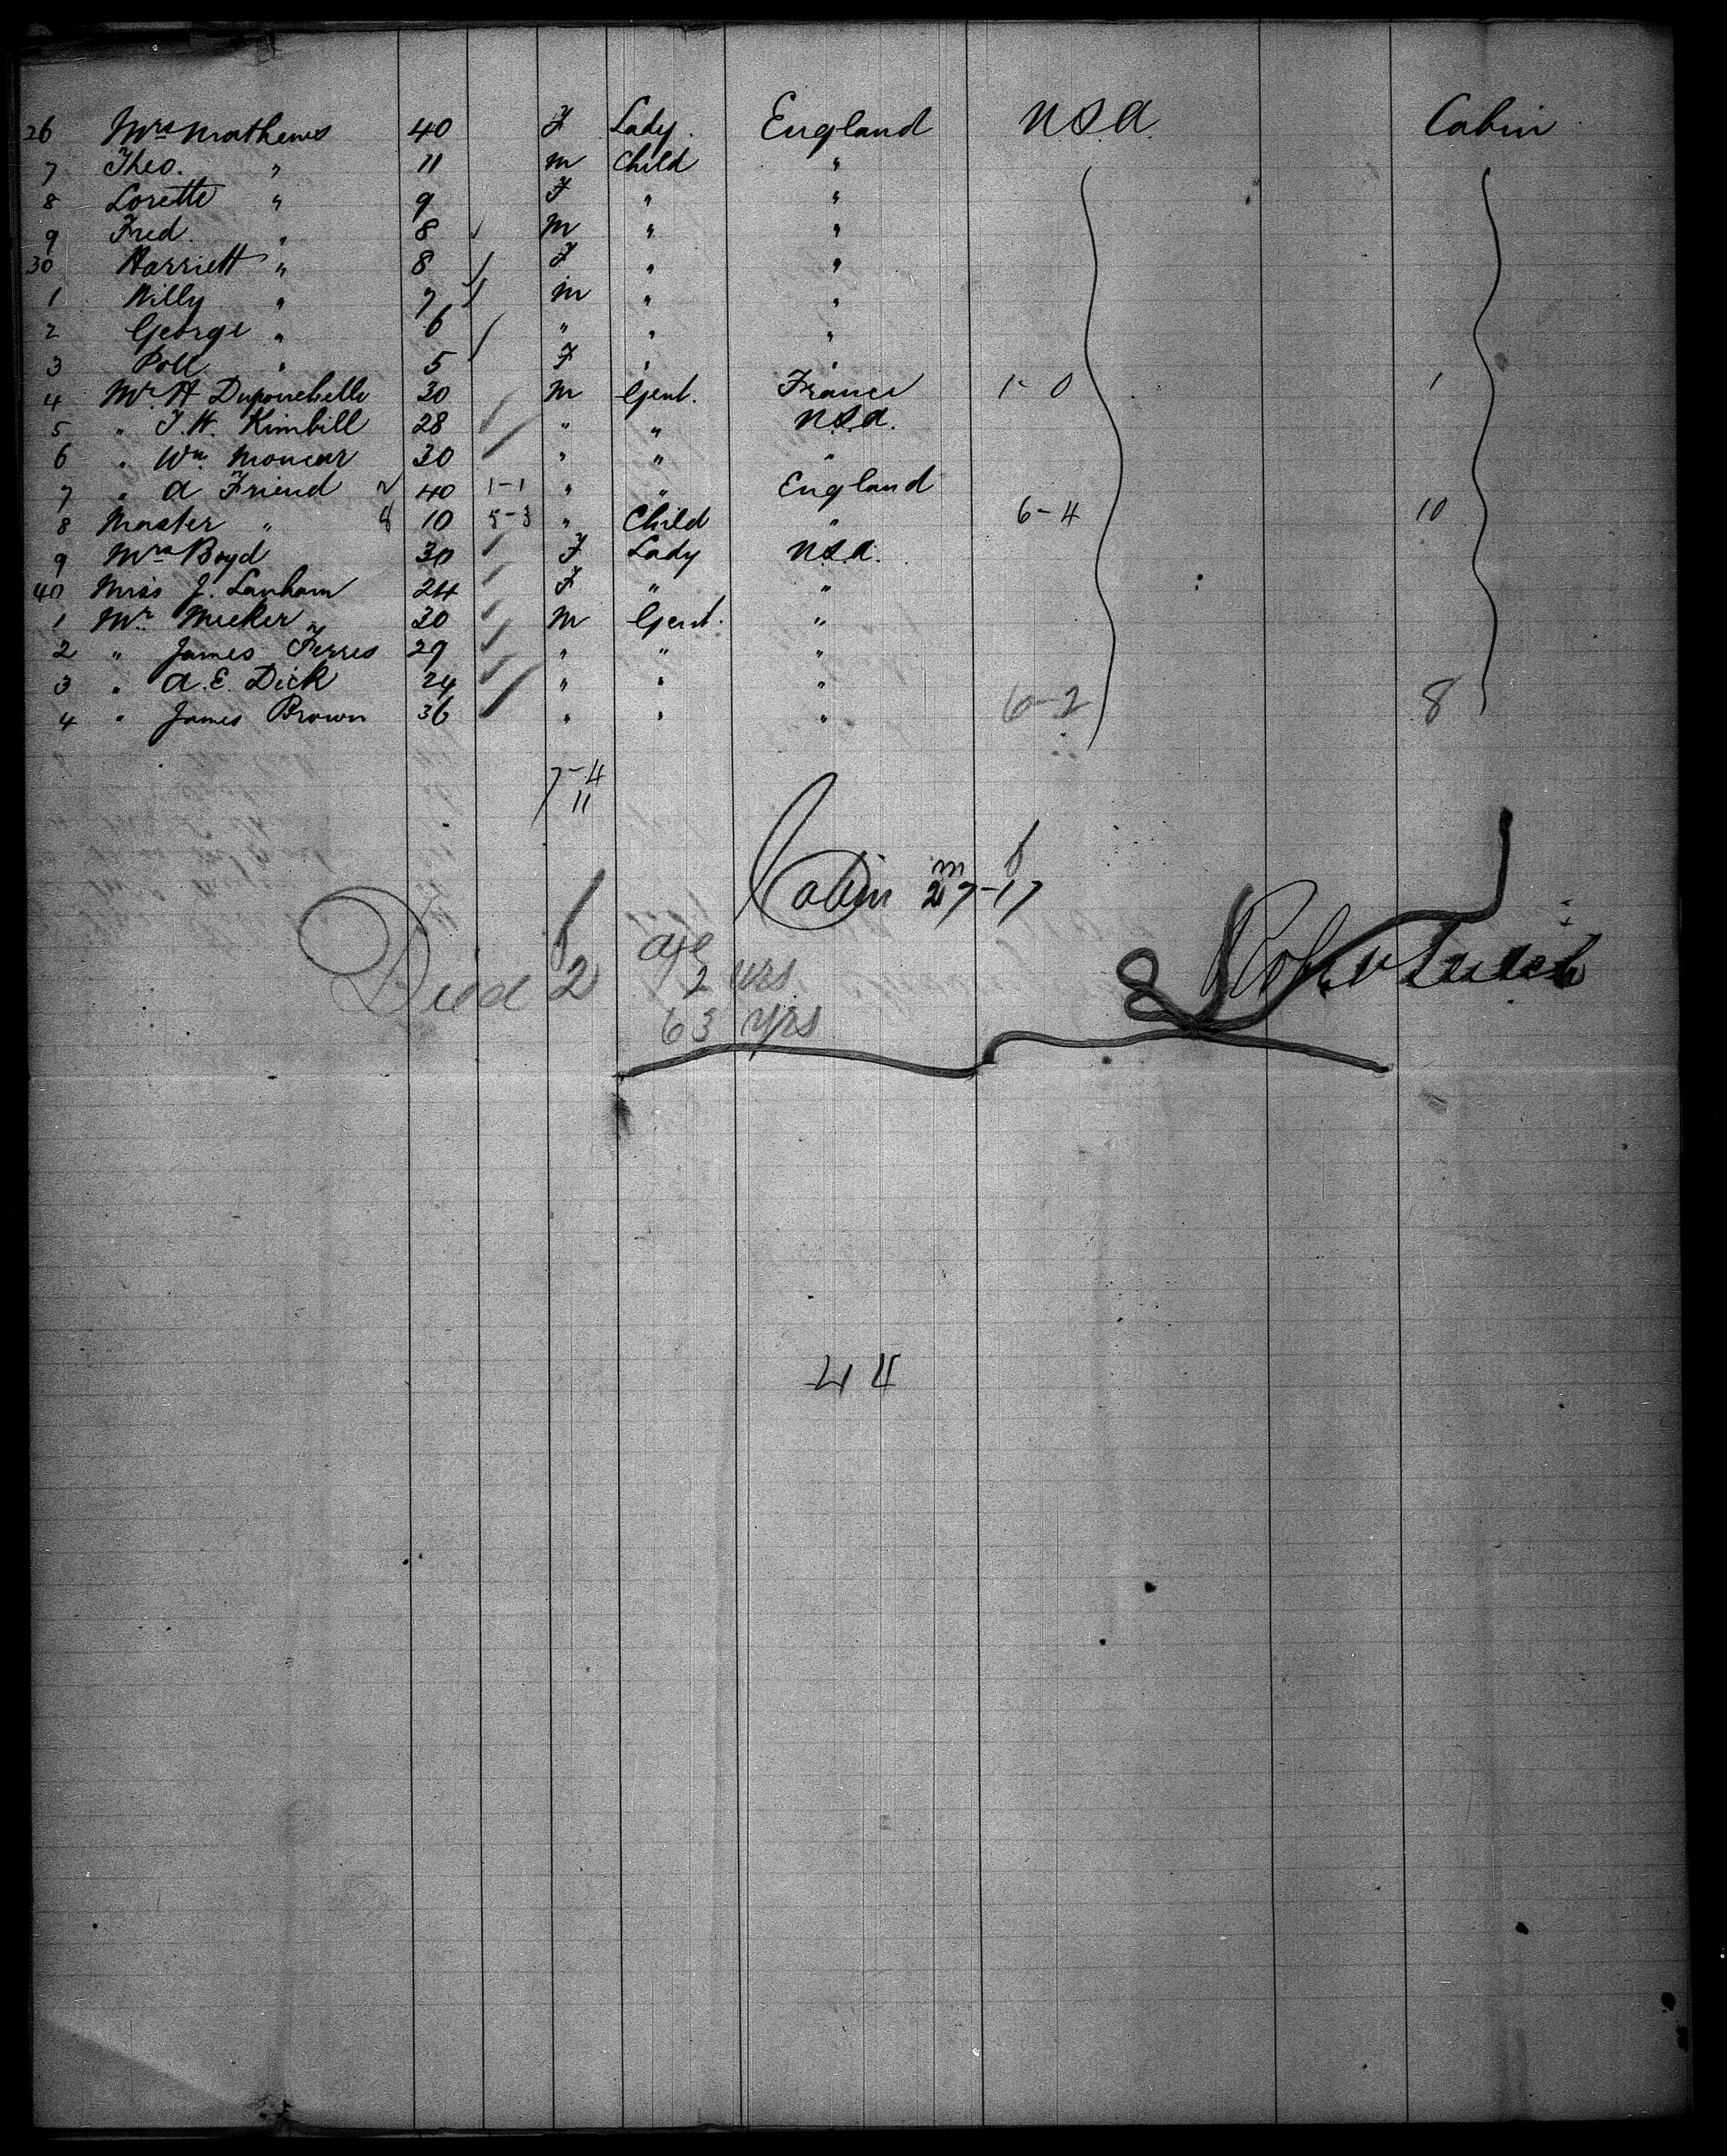 26 Mrs Mathews 40 F Lady. England U.S.A. Cabin
7 Theo. " 11 M Child "
8 Lorette " 9 F " "
9 Fred. " 8 M " "
30 Harriett " 8 F " "
1 Willy " 7 M " "
2 George " 6 " " "
3 Poll " 5 F " "
4 Mr. H 30 M Gent. France 1-0 1
5 " J. H. Kimbill 28 " " U.S.A.
6 " Wm. Moncar 30 " " "
7 " A Friend 2 40 1-1 " " England
8 Master " 8 10 5-3 " Child " 6-4 10
9 Mrs Boyd 30 F Lady U.S.A.
40 Miss J. Lanham 24 F " "
1 Mr. Meeker 30 M Gent. "
2 " James Ferres 29 " " "
3 " A. E. Dick 24 " " "
4 " James Brown 36 " " " 6-2 8
7-4
11
m f
Cabin 27-17
Died 2 age
2 yrs.
63 yrs
44